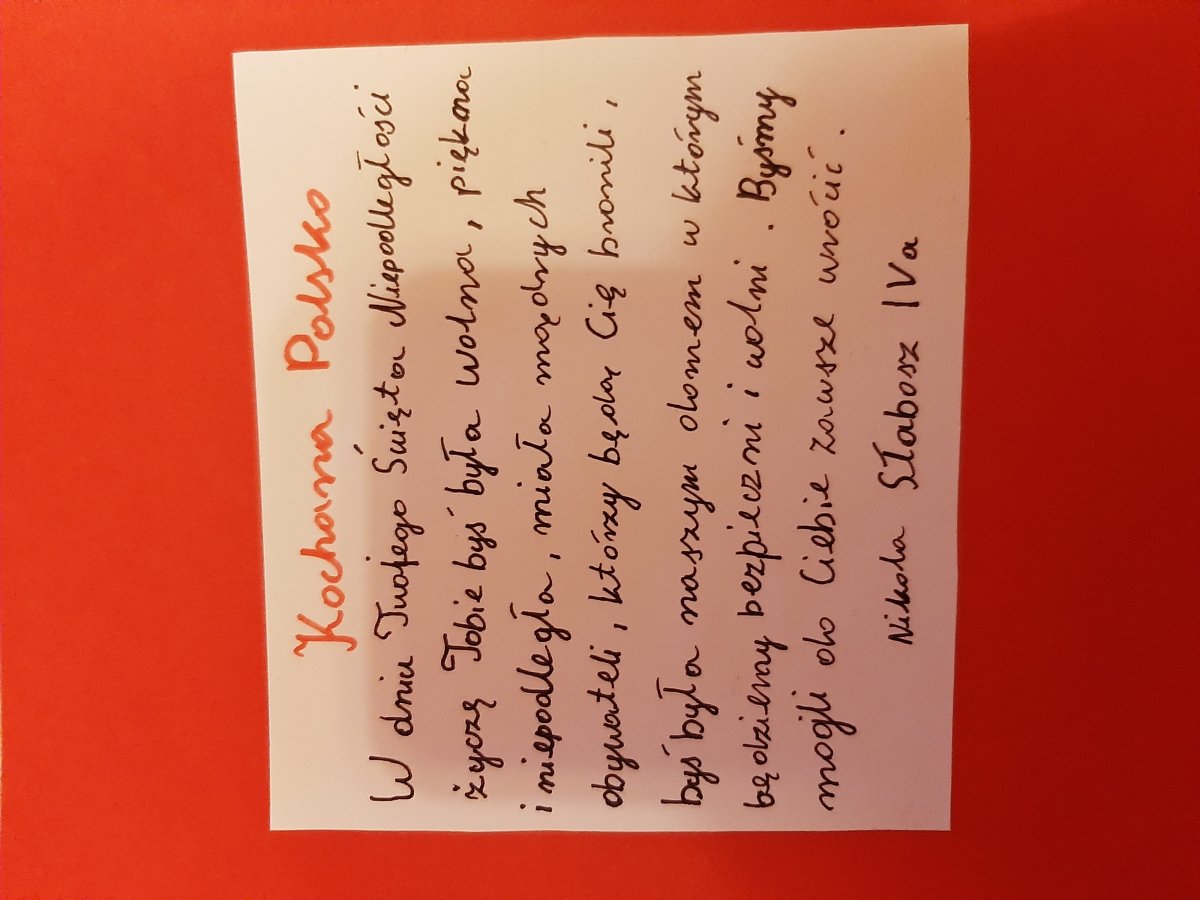 Kochana Polsko
W dniu Twojego Święta Niepodległości
życzę Tobie byś była wolna, piękna
i niepodległa, miała mądrych
obywateli, którzy będą Cię bronili,
byś była naszym domem w którym
będziemy bezpieczni i wolni. Byśmy
mogli do Ciebie zawsze wrócić.
Nikola Słabosz IVa